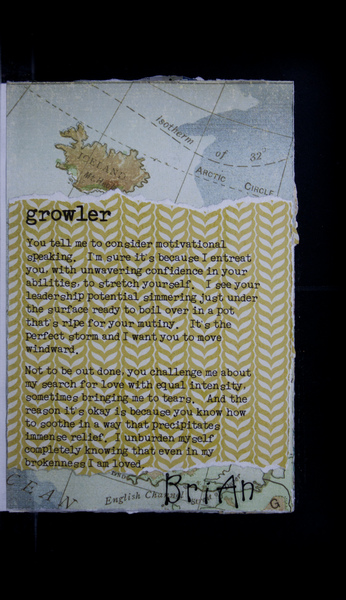 Isotherm of 32
ICELAND
ARCTIC CIRCLE
growler
You tell me to consider motivational
speaking. I'm sure it's because I entreat
you, with unwavering confidence in your
abilities, to stretch yourself. I see your
leadership potential simmering just under
the surface ready to boil over in a pot
that's ripe for your mutiny. It's the
perfect storm and I want you to move
windward.
Not to be out done, you challenge me about
my search for love with equal intensity,
sometimes bringing me to tears. And the
reason it's okay is because you know how
to soothe in a way that precipitates
immense relief. I unburden myself
completely knowing that even in my
brokenness I am loved.
CEAN
English Channel
BriAn
G